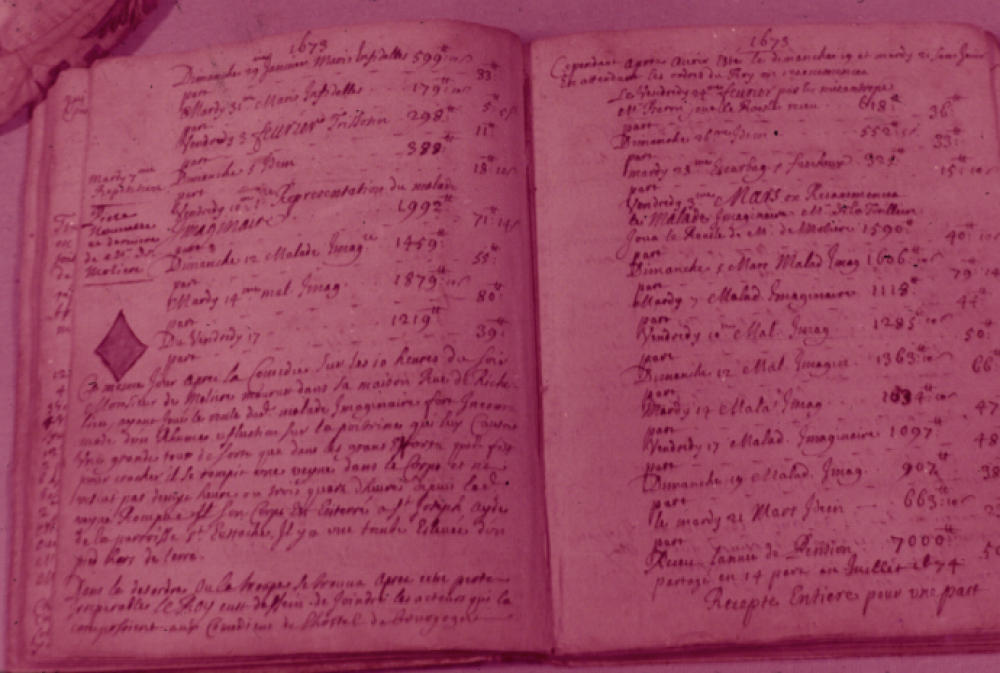 1673
Dimanche 29me Januier Maris Infidelles 599tt 10s
part 33tt
Mardy 31me Maris Infidelles 179tt 10s
part 5tt 5s
Vendredy 3 feurier Trissotin 298tt
part 11tt
Dimanche 5 Idem 388tt
part 18tt 10s
mardy 7me
Vendredy 10me Representation du malade
Imaginaire 1992tt
part 71tt 14s
Premiere
Nouuelle
et derniere
de Mr de
Moliere
Dimanche 12 Malade Imagre 1459tt
part 55tt
Mardy 14me mal. Imag. 1879tt 10s
part 80tt
Du Vendredy 17 1219tt
part 39tt
Ce mesme Jour apres la Comedie Sur les 10 heures du soir
Monsieur de Moliere mourut dans sa maison Rue de Riche
lieu, ayant Joué le roole dud. malade Imaginaire fort Incom
mode d'un Rhume et fluction sur la poitrine qui luy Causoit
Une grande toux de sorte que dans les grans Efforts quil fist
pour cracher il se rompit une veyne dans le Corps et ne
vescut pas demye heure ou trois quarts dheure depuis lad.
veyne Rompue Et Son Corps Est Enterré a St Joseph Ayde
de la parroisse St Eustache. Il y a une tombe Esleuée d'un
pied hors de terre.
Dans le desordre Ou la troupe se trouua Apres cette perte
Irreparable LE ROY eust dessein de Joindre les acteurs qui la
composoient aux Comediens de l'hostel de Bourgogne
1673
Cependant apres auoir esté le dimanche 19 et mardy 21 sans Jouer
En attendant les ordres du Roy on recommença
Le Vendredy 24me feurier par le misantrope
Mr Baron joua le Roole receu 618tt
part 36tt
Dimanche 26me Idem 552tt 10s
part 33tt
mardy 28me Escarbag. et fascheux
part 15tt 10s
Vendredy 3me MARS on Recommença
le Malade Imaginaire Mr de la Torilliere
Joua le Roole de Mr de Moliere 1590tt
part 40tt 10s
Dimanche 5 Mars Malad Imag 1606tt 10s
part 79tt 14
Mardy 7 Malad. Imaginaire 1118tt
part 44tt
Vendredy 10me Mal. Imag 1285tt 10s
part 50tt
Dimanche 12 Mal. Imagire 1363tt 10s
part 66tt
Mardy 14 Mala. Imag
part 47
Vendredy 17 Malad. Imaginaire 1097tt
part 48
Dimanche 19 Malad. Imag. 907tt
part 38
le mardy 21 Mars Idem 663tt 10s
part
Receu l'année de Pension 7000tt
partagé en 14 part au Juillet 1674
Recepte Entiere pour une part